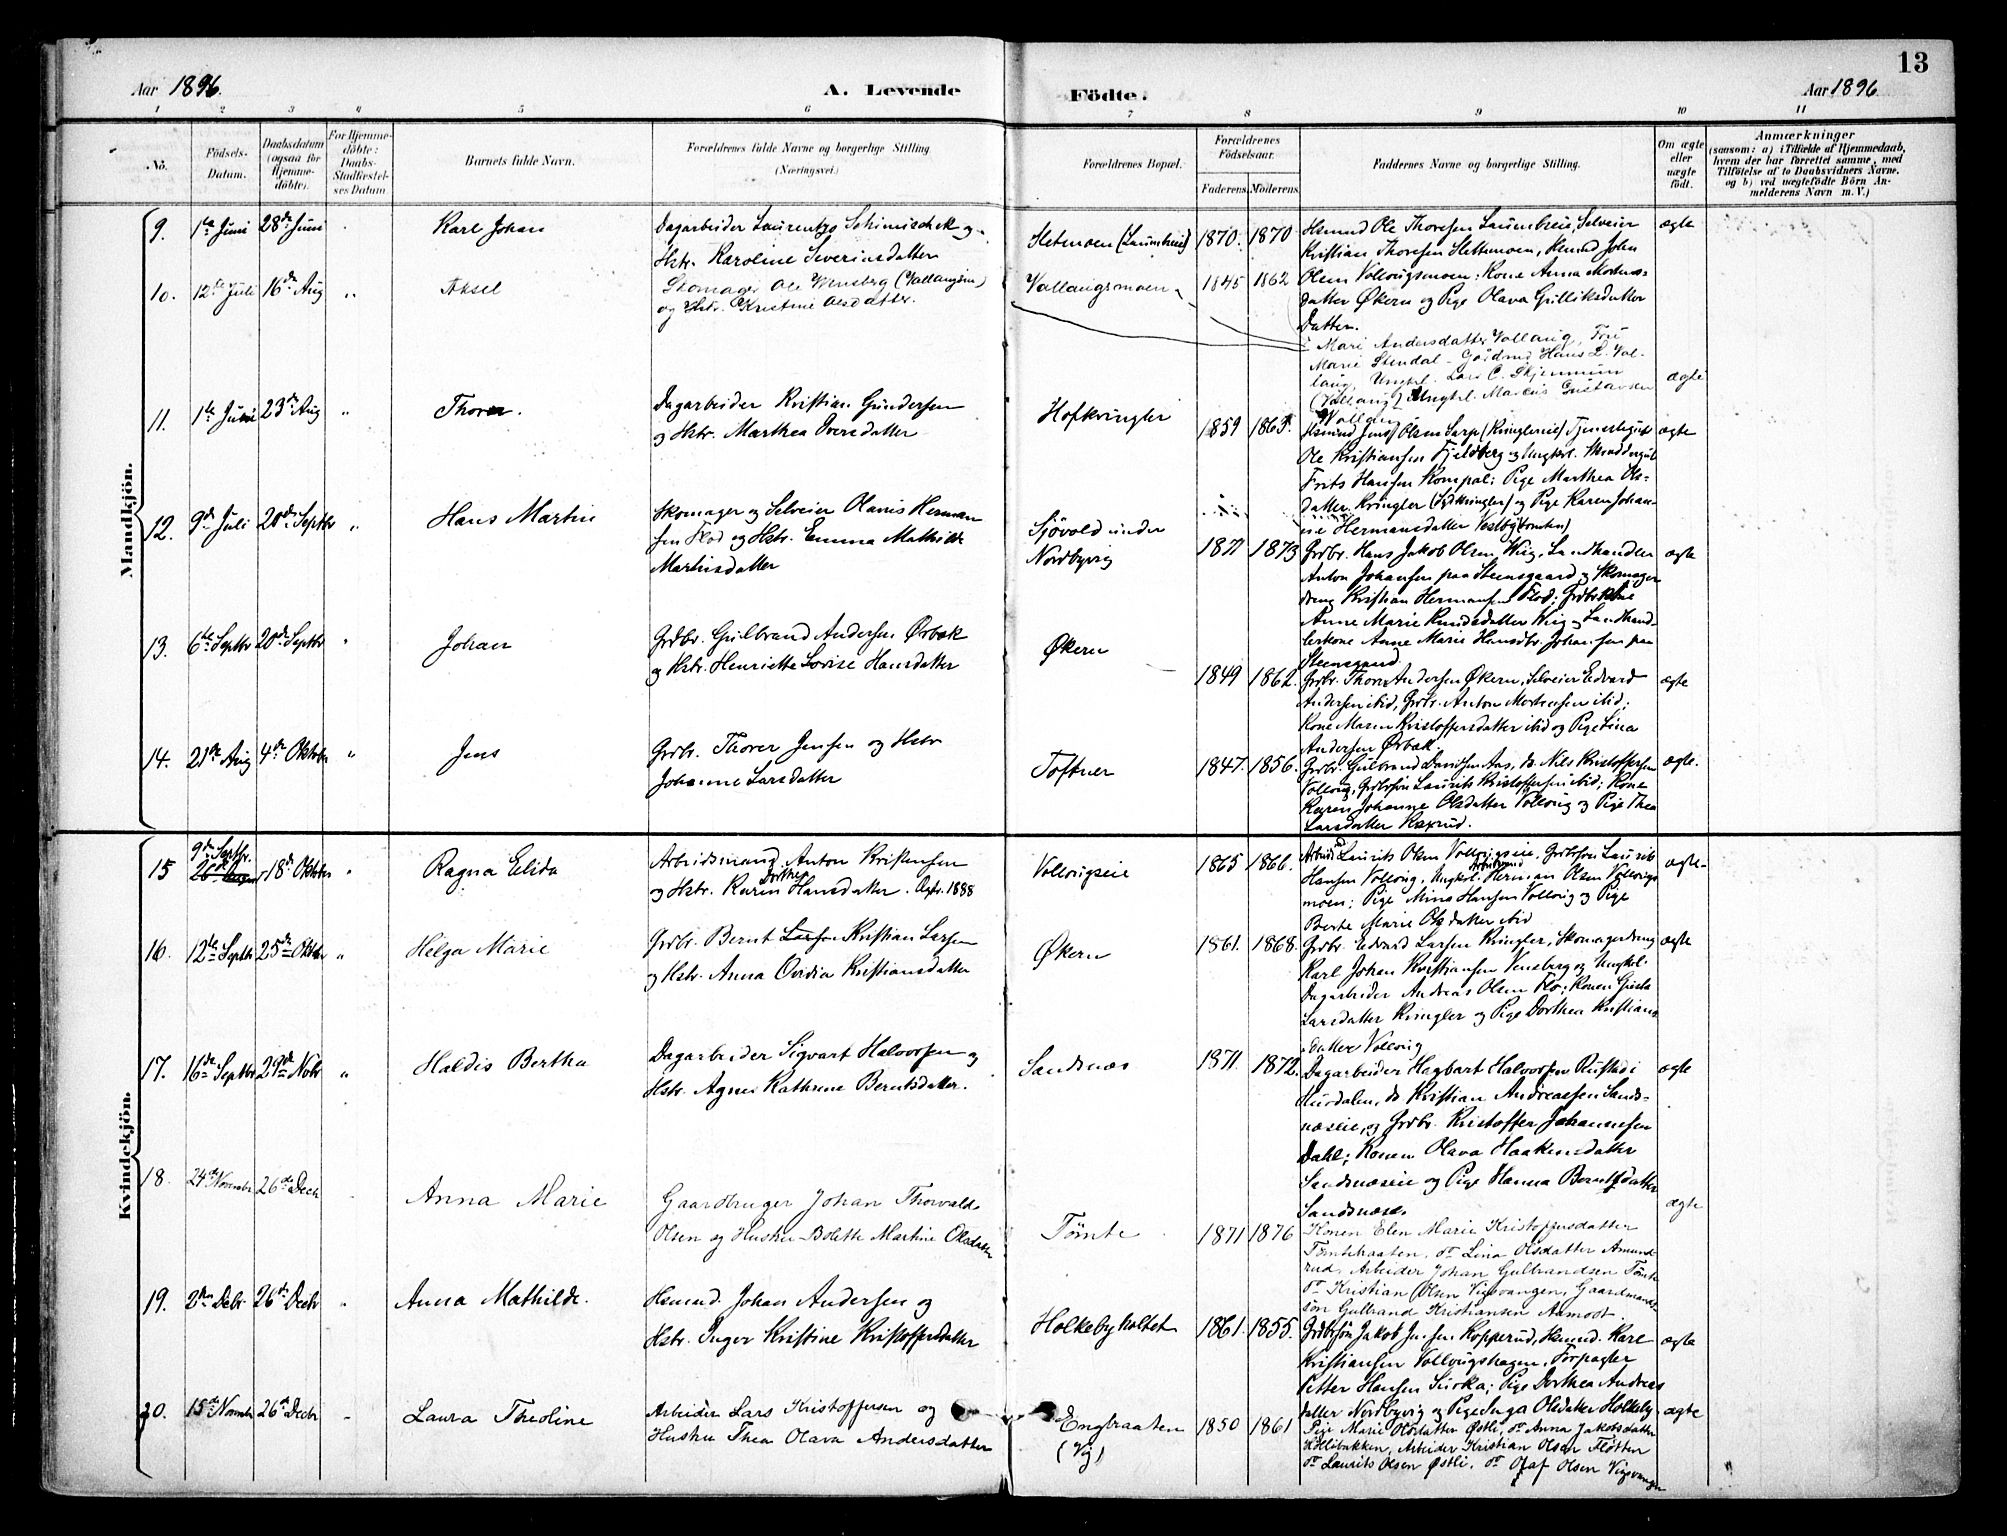 13
Aar 1896.
A. Levende
Födte.
Aar 1896
1 2 3 4 5 6 7 8 9 10 11
No.
Födsels-Datum.
Daabsdatum (ogsaa for Hjemme-döbte).
For Hjemme-döbte: Daabs-Stadfæstel-ses Datum.
Barnets fulde Navn.
Forældrenes fulde Navne og borgerlige Stilling (Næringsvei.)
Forældrenes Bopæl.
Forældrenes Födselsaar.
Faderens. Moderens.
Faddernes Navne og borgerlige Stilling.
Om ægte eller uægte födt.
Anmærkninger
(saasom: a) i Tilfælde af Hjemmedaab, hvem der har forrettet samme, med Tilföielse af to Daabsvidners Navne, og b) ved uægtefödte Börn An-melderens Navn m. V.)
Mandkjön.
9. 1ste Juni 28de Juni Karl Johan
Dagarbeider Laurentzo Schimischek og
Hstr. Karoline Severinsdatter
Sletmoen (Laumbeie) 1870. 1870
Hsmnd Ole Thoresen Laumbeie, Selveier
Kristian Thoresen Slettemoen, Hsmnd John
Olsen Vollougsmoen; Kone Anna Mortens-
datter Økern og Pige Olava Gulliksdatter
Datten.
ægte
10. 12te Juli 16de Aug " Aksel
Skomager Ole Wensberg (Vallangsm)
og Hstr. Kristine Olsdatter.
Vallangsmoen 1845 1862
Mari Andersdatter Vollaug,
Marie Stendal - Gårdmd Hans L. Vol-
laug, Ungkl. Lars C. Skjennum
(Vollaug) Ungkl. Marius Gustavsen
Vollaug
ægte
11. 1ste Juni 23de Aug " Thorer.
Dagarbeider Kristian Gundersen
og Hstr. Marthea Iversdatter
Hofkringler 1859 1863.
Hsmnd Jens Olsen Sarp (Kringlereie) Tjenestegut
Ole Kristiansen Fjeldberg og Ungkl. Skræddergut
Frits Hansen Kompal; Pige Marthea Ols-
datter Kringler (Sydkringler) og Pige Karen Johan-
ne Hermansdatter Vestby
ægte
12. 9de Juli 20de Septbr " Hans Martin
Skomager og Selveier Olavis Herman
sen Flod og Hstr. Emma Mathilde
Martinsdatter
Sjøvold under
Nordbyvig
1871 1873
Grdbr. Hans Jakob Olsen Wiig, Landhandler
Anton Johansen paa Steensgaard og Skomager
dreng Kristian Hermansen Flod; Grdbrkone
Anne Marie Knudsdatter Wiig og Landhand-
lerkone Anne Marie Hansdtr. Johansen paa
Steensgaard
ægte
13. 6te Septbr 20de Septbr " Johan
Grdbr. Gulbrand Andersen Ørbæk
og Hstr. Henriette Lovise Hansdatter
Økern 1849 1862.
Grdbr. Thore Andersen Økern, Selveier Edvard
Andersen ibid, Grdbr. Anton Mortensen ibid;
Kone Maren Kristoffersdatter ibid og Pige Lina
Andersen Ørbæk.
ægte
14. 21de Aug 4de Oktober " Jens
Grdbr. Thorer Jensen og Hstr
Johanne Larsdatter
Toftner 1847. 1856.
Grdbr. Gulbrand Davidsen Aas, do. Nils Kristoffersen
Vollaug, Grdbrsøn Laurits Kristoffersen ibid; Kone
Karen Johanne Olsdatter Vollaug og Pige Thea
Larsdatter Raxrud.
ægte.
Kvindekjön.
15 9de Septbr. 18de Oktober " Ragna Elida
Arbeidsmand Anton Kristensen
og Hstr. Karen Dorthea Hansdatter. Ægtv. 1888
Vollougseie 1865 1866.
Arbeider Laurits Olsen Vollougseie, Grdbrsøn Laurits
Hansen Vollaug, Ungkrl. Arbeidsmand Herman Olsen Vollougs
moen; Pige Mina Hansen Vollaug og Pige
Berte Marie Olsdatter ibid
ægte
16. 12te Septbr 25de Oktbr " Helga Marie
Grdbr. Bernt Larsen Kristian Larsen
og Hstr. Anna Ovidia Kristiansdatter
Økern 1861. 1868.
Grdbr. Edvard Larsen Kringler, Skomagerdreng
Karl Johan Kristiansen Vensberg og Ungkl.
Dagarbeider Andreas Olsen Flo; Konen Gusta
Larsdatter Kringler og Pige Dorthea Kristians
datter Vollaug
ægte
17. 16de Septbr 29de Novbr " Haldis Bertha
Dagarbeider Sigvart Halvorsen og
Hstr. Agnes Kathrine Berntsdatter.
Sandsnæs 1871. 1872.
Dagarbeider Hagbart Halvorsen Rustad i
Hurdalen, do Kristian Andreassen Sands-
næseie, og Grdbr. Kristoffer Johannesen
Dahl; Konen Olava Haakensdatter
Sandsnæseie og Pige Hanna Berntsdatter
Sandsnæs.
ægte
18. 24de November 26de Decb Anna Marie
Gaardbruger Johan Thorvald
Olsen og Hustru Bolette Martine Olsdatter
Tømte 1871 1876
Konen Elen Marie Kristoffersdatter
Tømtebraaten, do Lina Olsdatter Amund
rud, Arbeider Johan Gulbrandsen Tømte
do Kristian Olsen Vigsvangen, Gaardmands
søn Gulbrand Kristiansen Aamodt
ægte
19. 2den Decbr 26de Decbr " Anna Mathilde.
Hsmnd. Johan Andersen og
Hstr. Inger Kristine Kristoffersdatter
Holkebyholtet 1861. 1855.
Grdbrsøn Jakob Jensen Kopperud, Hsmnd. Karl
Kristiansen Vollougshagen, Forpagter
Petter Hansen Sinka; Pige Dorthea Andreas
datter Nordbyvig og Pige Inga Olsdatter Holkeby
ægte
20. 15de Novembr 26de Decbr Laura Theoline
Arbeider Lars Kristoffersen og
Hustru Thea Olava Andersdatter
Engbraaten
(Vig)
1850 1861
Pige Marie Olsdatter Østli, do Anna Jakobsdatter
Hollibakken, Arbeider Kristian Olsen Fløtten
do Laurits Olsen Østli, do Olaf Olsen Vigsvangen
ægte